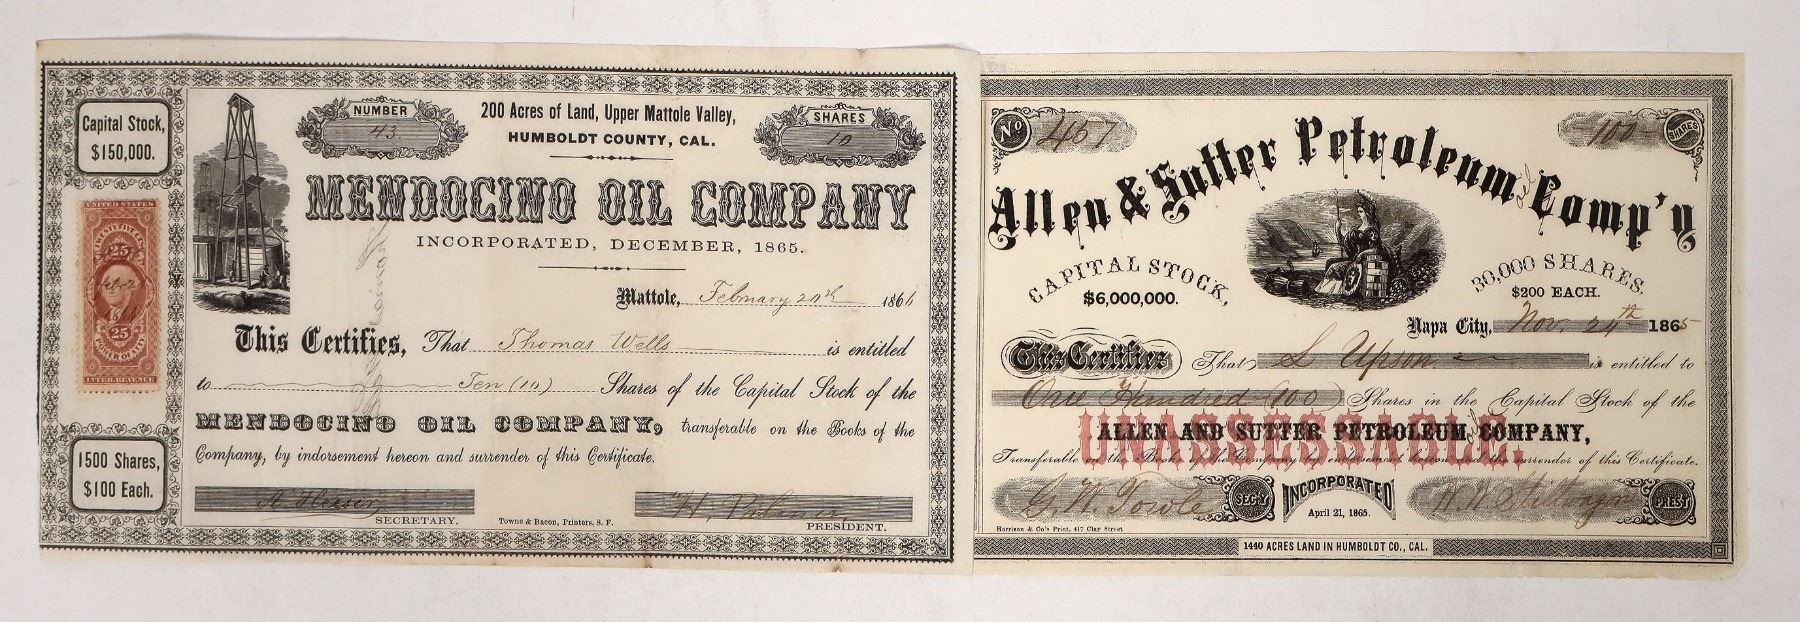 Capital Stock,
$150,000.
UNITED STATES
TWENTY FIVE CTS
25
25
POWER OF ATT'Y
INTER. REVENUE
1500 Shares,
$100 Each.
NUMBER
43
200 Acres of Land, Upper Mattole Valley,
HUMBOLDT COUNTY, CAL.
SHARES
10
MENDOCINO OIL COMPANY
INCORPORATED, DECEMBER, 1865.
Mattole, February 20th 1866
This Certifies, That Thomas Wells is entitled
to Ten (10) Shares of the Capital Stock of the
MENDOCINO OIL COMPANY, transferable on the Books of the
Company, by indorsement hereon and surrender of this Certificate.
A. Heeser
SECRETARY.
Towne & Bacon, Printers, S. F.
PRESIDENT.
No 467
100 SHARES
Allen & Sutter Petroleum Comp'y
CAPITAL STOCK,
$6,000,000.
30,000 SHARES.
$200 EACH.
Napa City, Nov. 24th 1865
This Certifies That L Upson is entitled to
One Hundred (100) Shares in the Capital Stock of the
UNASSESSABLE.
ALLEN AND SUTTER PETROLEUM COMPANY,
Transferable on the Books of the Company by endorsement hereon and the surrender of this Certificate.
G. W. Towle SEC'Y
INCORPORATED
April 21, 1865.
PREST
Harrison & Co's Print, 417 Clay Street
1440 ACRES LAND IN HUMBOLDT CO., CAL.